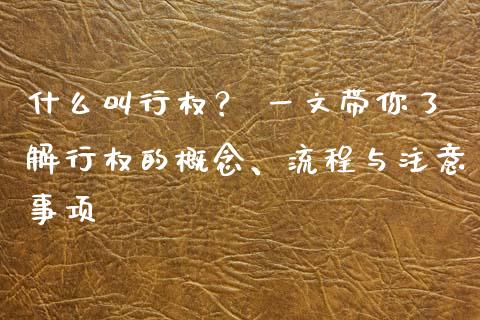 什么叫行权？ 一文带你了
解行权的概念、流程与注意
事项